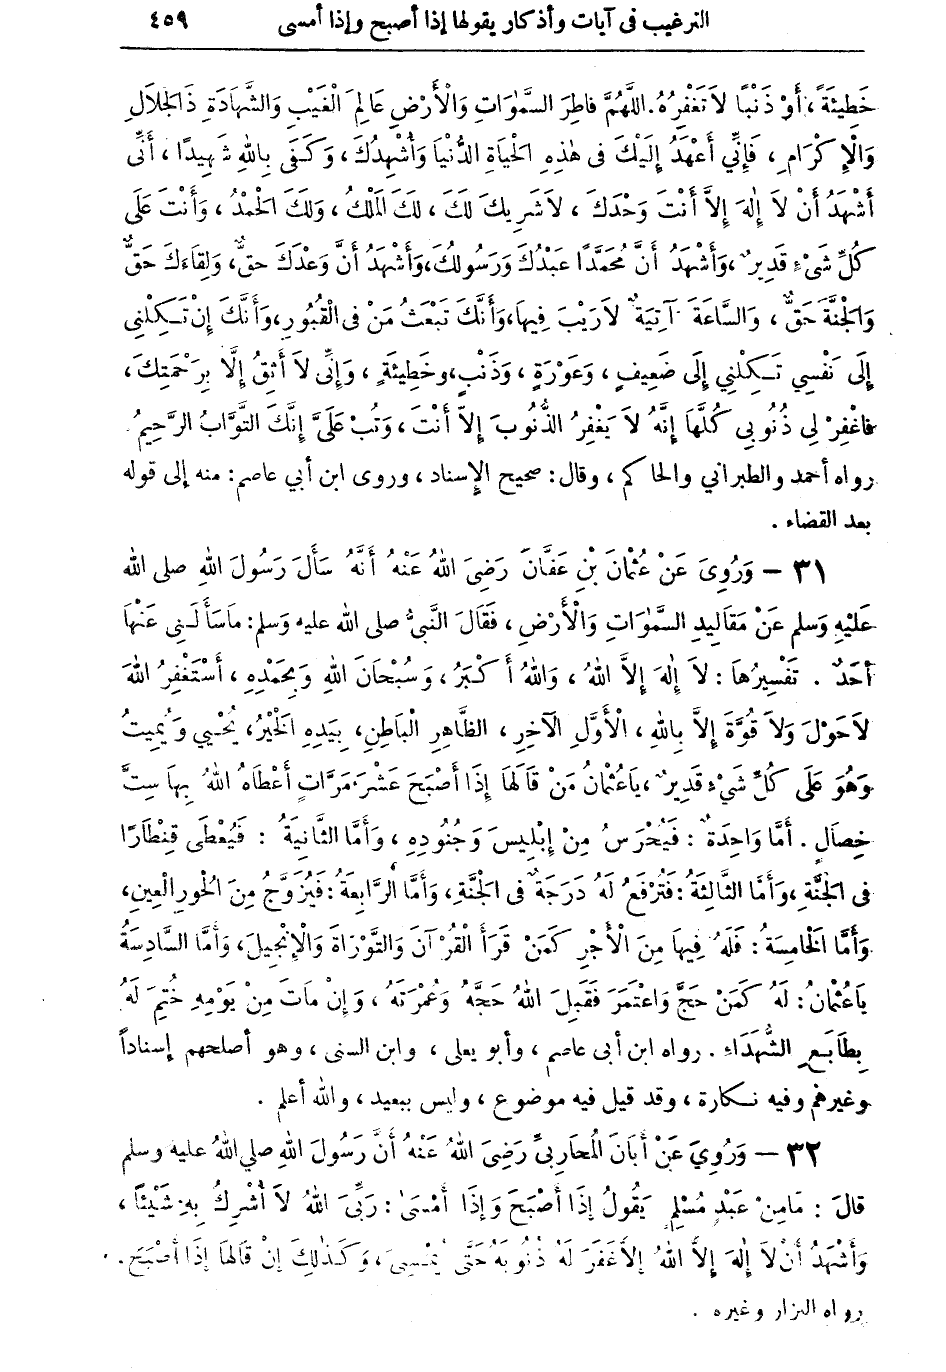 الترغيب فى آيات وأذكار يقولها إذا أصبح وإذا أمسى ٤٥٩
خَطِيئَةً، أَوْ ذَنْبًا لاَ تَغْفِرُهُ. اللَّهُمَّ فَاطِرَ السَّمٰوَاتِ وَالْأَرْضِ عَالِمَ الْغَيْبِ وَالشَّهَادَةِ ذَا الْجَلَالِ
وَالْإِكْرَامِ، فَإِنِّي أَعْهَدُ إِلَيْكَ فى هٰذِهِ الْحَيَاةِ الدُّنْيَا وَأُشْهِدُكَ، وَكَفَى بِاللهِ شَهِيدًا، أَنِّي
أَشْهَدُ أَنْ لاَ إِلٰهَ إِلاَّ أَنْتَ وَحْدَكَ، لاَشَرِيكَ لَكَ، لَكَ الْمُلْكُ، وَلَكَ الْحَمْدُ، وَأَنْتَ عَلَى
كُلِّ شَيْءٍ قَدِيرٌ، وَأَشْهَدُ أَنَّ مُحَمَّدًا عَبْدُكَ وَرَسُولُكَ، وَأَشْهَدُ أَنَّ وَعْدَكَ حَقٌّ، وَلِقَاءَكَ حَقٌّ
وَالْجَنَّةَ حَقٌّ، وَالسَّاعَةَ آتِيَةٌ لاَ رَيْبَ فِيهَا، وَأَنَّكَ تَبْعَثُ مَنْ فى الْقُبُورِ، وَأَنَّكَ إِنْ تَكِلْنِي
إِلَى نَفْسِي تَكِلْنِي إِلَى ضَعِيفٍ، وَعَوْرَةٍ، وَذَنْبٍ، وَخَطِيئَةٍ، وَإِنِّى لاَ أَثِقُ إِلَّا بِرَحْمَتِكَ،
فَاغْفِرْ لِى ذُنُوبِي كُلَّهَا إِنَّهُ لاَ يَغْفِرُ الذُّنُوبَ إِلاَّ أَنْتَ، وَتُبْ عَلَىَّ إِنَّكَ التَّوَّابُ الرَّحِيمُ.
رواه أحمد والطبراني والحاكم، وقال: صحيح الإِسناد، وروى ابن أبي عاصم: منه إلى قوله
بعد القضاء.
٣١ – وَرُوِىَ عَنْ عُثْمَانَ بْنِ عَفَّانَ رَضِىَ اللهُ عَنْهُ أَنَّهُ سَأَلَ رَسُولَ اللهِ صلى الله
عَلَيْهِ وَسلم عَنْ مَقَالِيدِ السَّمٰوَاتِ وَالْأَرْضِ، فَقَالَ النَّبِىُّ صلى الله عليه وَسلم: مَا سَأَلَنِى عَنْهَا
أَحَدٌ. تَفْسِيرُهَا: لاَ إِلٰهَ إِلاَّ اللهُ، وَاللهُ أَكْبَرُ، وَسُبْحَانَ اللهِ وَبِحَمْدِهِ، أَسْتَغْفِرُ اللهَ
لاَحَوْلَ وَلاَ قُوَّةَ إِلاَّ بِاللهِ، الْأَوَّلِ الآخِرِ، الظَّاهِرِ الْبَاطِنِ، بِيَدِهِ الْخَيْرُ، يُحْيِي وَيُمِيتُ
وَهُوَ عَلَى كُلِّ شَيْءٍ قَدِيرٌ، يَاعُثْمَانُ مَنْ قَالَهَا إِذَا أَصْبَحَ عَشْرَ مَرَّاتٍ أَعْطَاهُ اللهُ بِهَا سِتَّ
خِصَالٍ. أَمَّا وَاحِدَةٌ: فَيُحْرَسُ مِنْ إِبْلِيسَ وَجُنُودِهِ، وَأَمَّا الثَّانِيَةُ: فَيُعْطَى قِنْطَارًا
فى الْجَنَّةِ، وَأَمَّا الثَّالِثَةُ: فَتُرْفَعُ لَهُ دَرَجَةٌ فى الْجَنَّةِ، وَأَمَّا الرَّابِعَةُ: فَيُزَوَّجُ مِنَ الْحُورِ الْعِينِ،
وَأَمَّا الْخَامِسَةُ: فَلَهُ فِيهَا مِنَ الْأَجْرِ كَمَنْ قَرَأَ الْقُرْآنَ وَالتَّوْرَاةَ وَالْإِنْجِيلَ، وَأَمَّا السَّادِسَةُ
يَاعُثْمَانُ: لَهُ كَمَنْ حَجَّ وَاعْتَمَرَ فَقَبِلَ اللهُ حَجَّهُ وَعُمْرَتَهُ، وَإِنْ مَاتَ مِنْ يَوْمِهِ خُتِمَ لَهُ
بِطَابَعِ الشُّهَدَاءِ. رواه ابن أبى عاصم، وأبو يعلى، وابن السنى، وهو أصلحهم إسناداً
وغيرهم وفيه نكارة، وقد قيل فيه موضوع، وليس ببعيد، والله أعلم.
٣٢ – وَرُوِيَ عَنْ أَبَانَ الْمُحَارِبِىِّ رَضِىَ اللهُ عَنْهُ أَنَّ رَسُولَ اللهِ صلى اللهُ عليه وسلم
قالَ: مَا مِنْ عَبْدٍ مُسْلِمٍ يَقُولُ إِذَا أَصْبَحَ وَإِذَا أَمْسَىٰ: رَبِّىَ اللهُ لاَ أُشْرِكُ بِهِ شَيْئًا،
وَأَشْهَدُ أَنْ لاَ إِلٰهَ إِلاَّ اللهُ إِلاَّغَفَرَ لَهُ ذُنُوبَهُ حَتَّى يُمْسِىَ، وَكَذٰلِكَ إِنْ قَالَهَا إِذَا أَصْبَحَ.
رواه البزار وغيره.